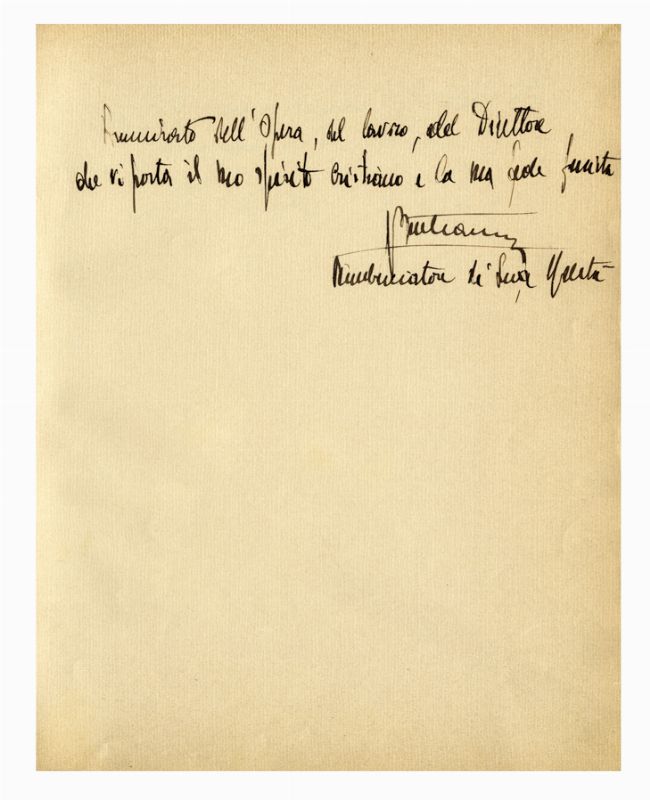 Ammirato dell'opera, del lavoro, del Direttore
che vi porta il suo spirito cristiano e la sua fede
di Sua